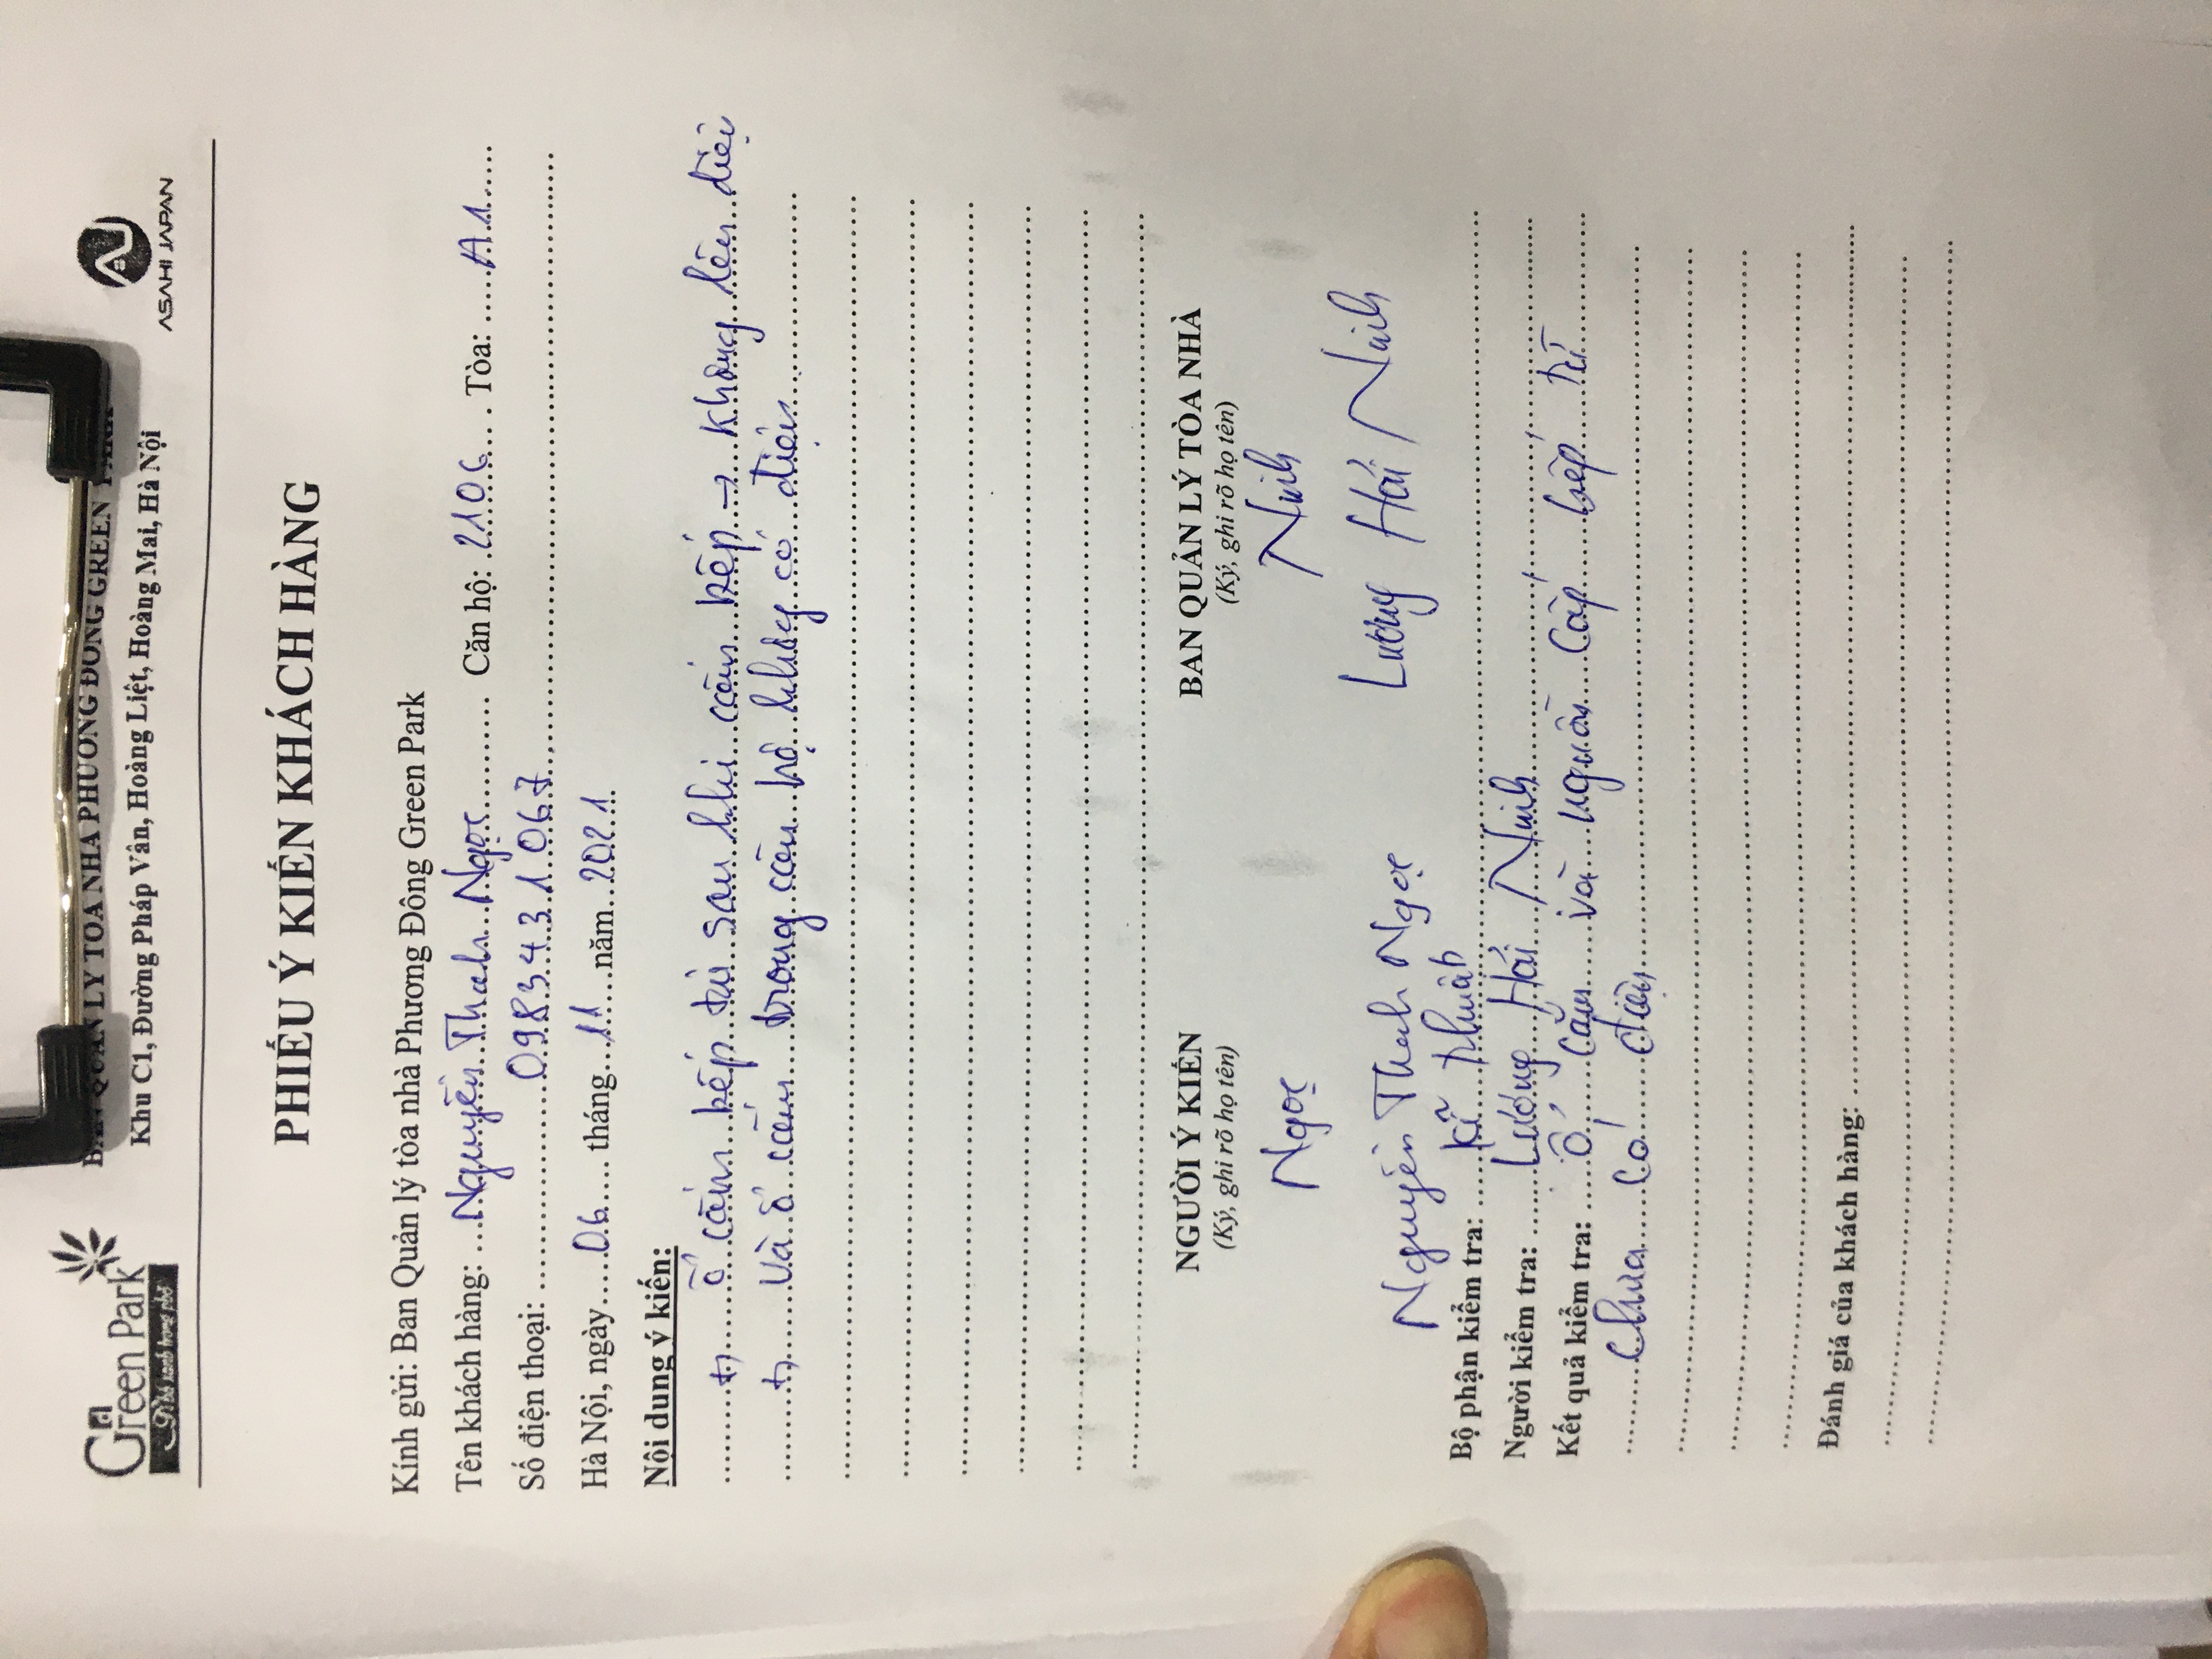 Green Park
BAN QUẢN LÝ TÒA NHÀ PHƯƠNG ĐÔNG GREEN PARK
Khu C1, Đường Pháp Vân, Hoàng Liệt, Hoàng Mai, Hà Nội
ASAHI JAPAN
PHIẾU Ý KIẾN KHÁCH HÀNG
Kính gửi: Ban Quản lý tòa nhà Phương Đông Green Park
Tên khách hàng: Nguyễn Thanh Ngọc Căn hộ: 2106 Tòa: A1
Số điện thoại: 0983431067
Hà Nội, ngày 06 tháng 11 năm 2021
Nội dung ý kiến:
+, ổ cắm bếp từ sau khi cắm bếp → không lên điện
+, Và ổ cắm trong căn hộ không có điện
NGƯỜI Ý KIẾN BAN QUẢN LÝ TÒA NHÀ
(Ký, ghi rõ họ tên) (Ký, ghi rõ họ tên)
Ngọc Ninh
Nguyễn Thanh Ngọc Lương Hải Ninh
Bộ phận kiểm tra: Kĩ thuật
Người kiểm tra: Lương Hải Ninh
Kết quả kiểm tra: Ổ cắm và nguồn cấp bếp từ
Chưa có điện
Đánh giá của khách hàng: